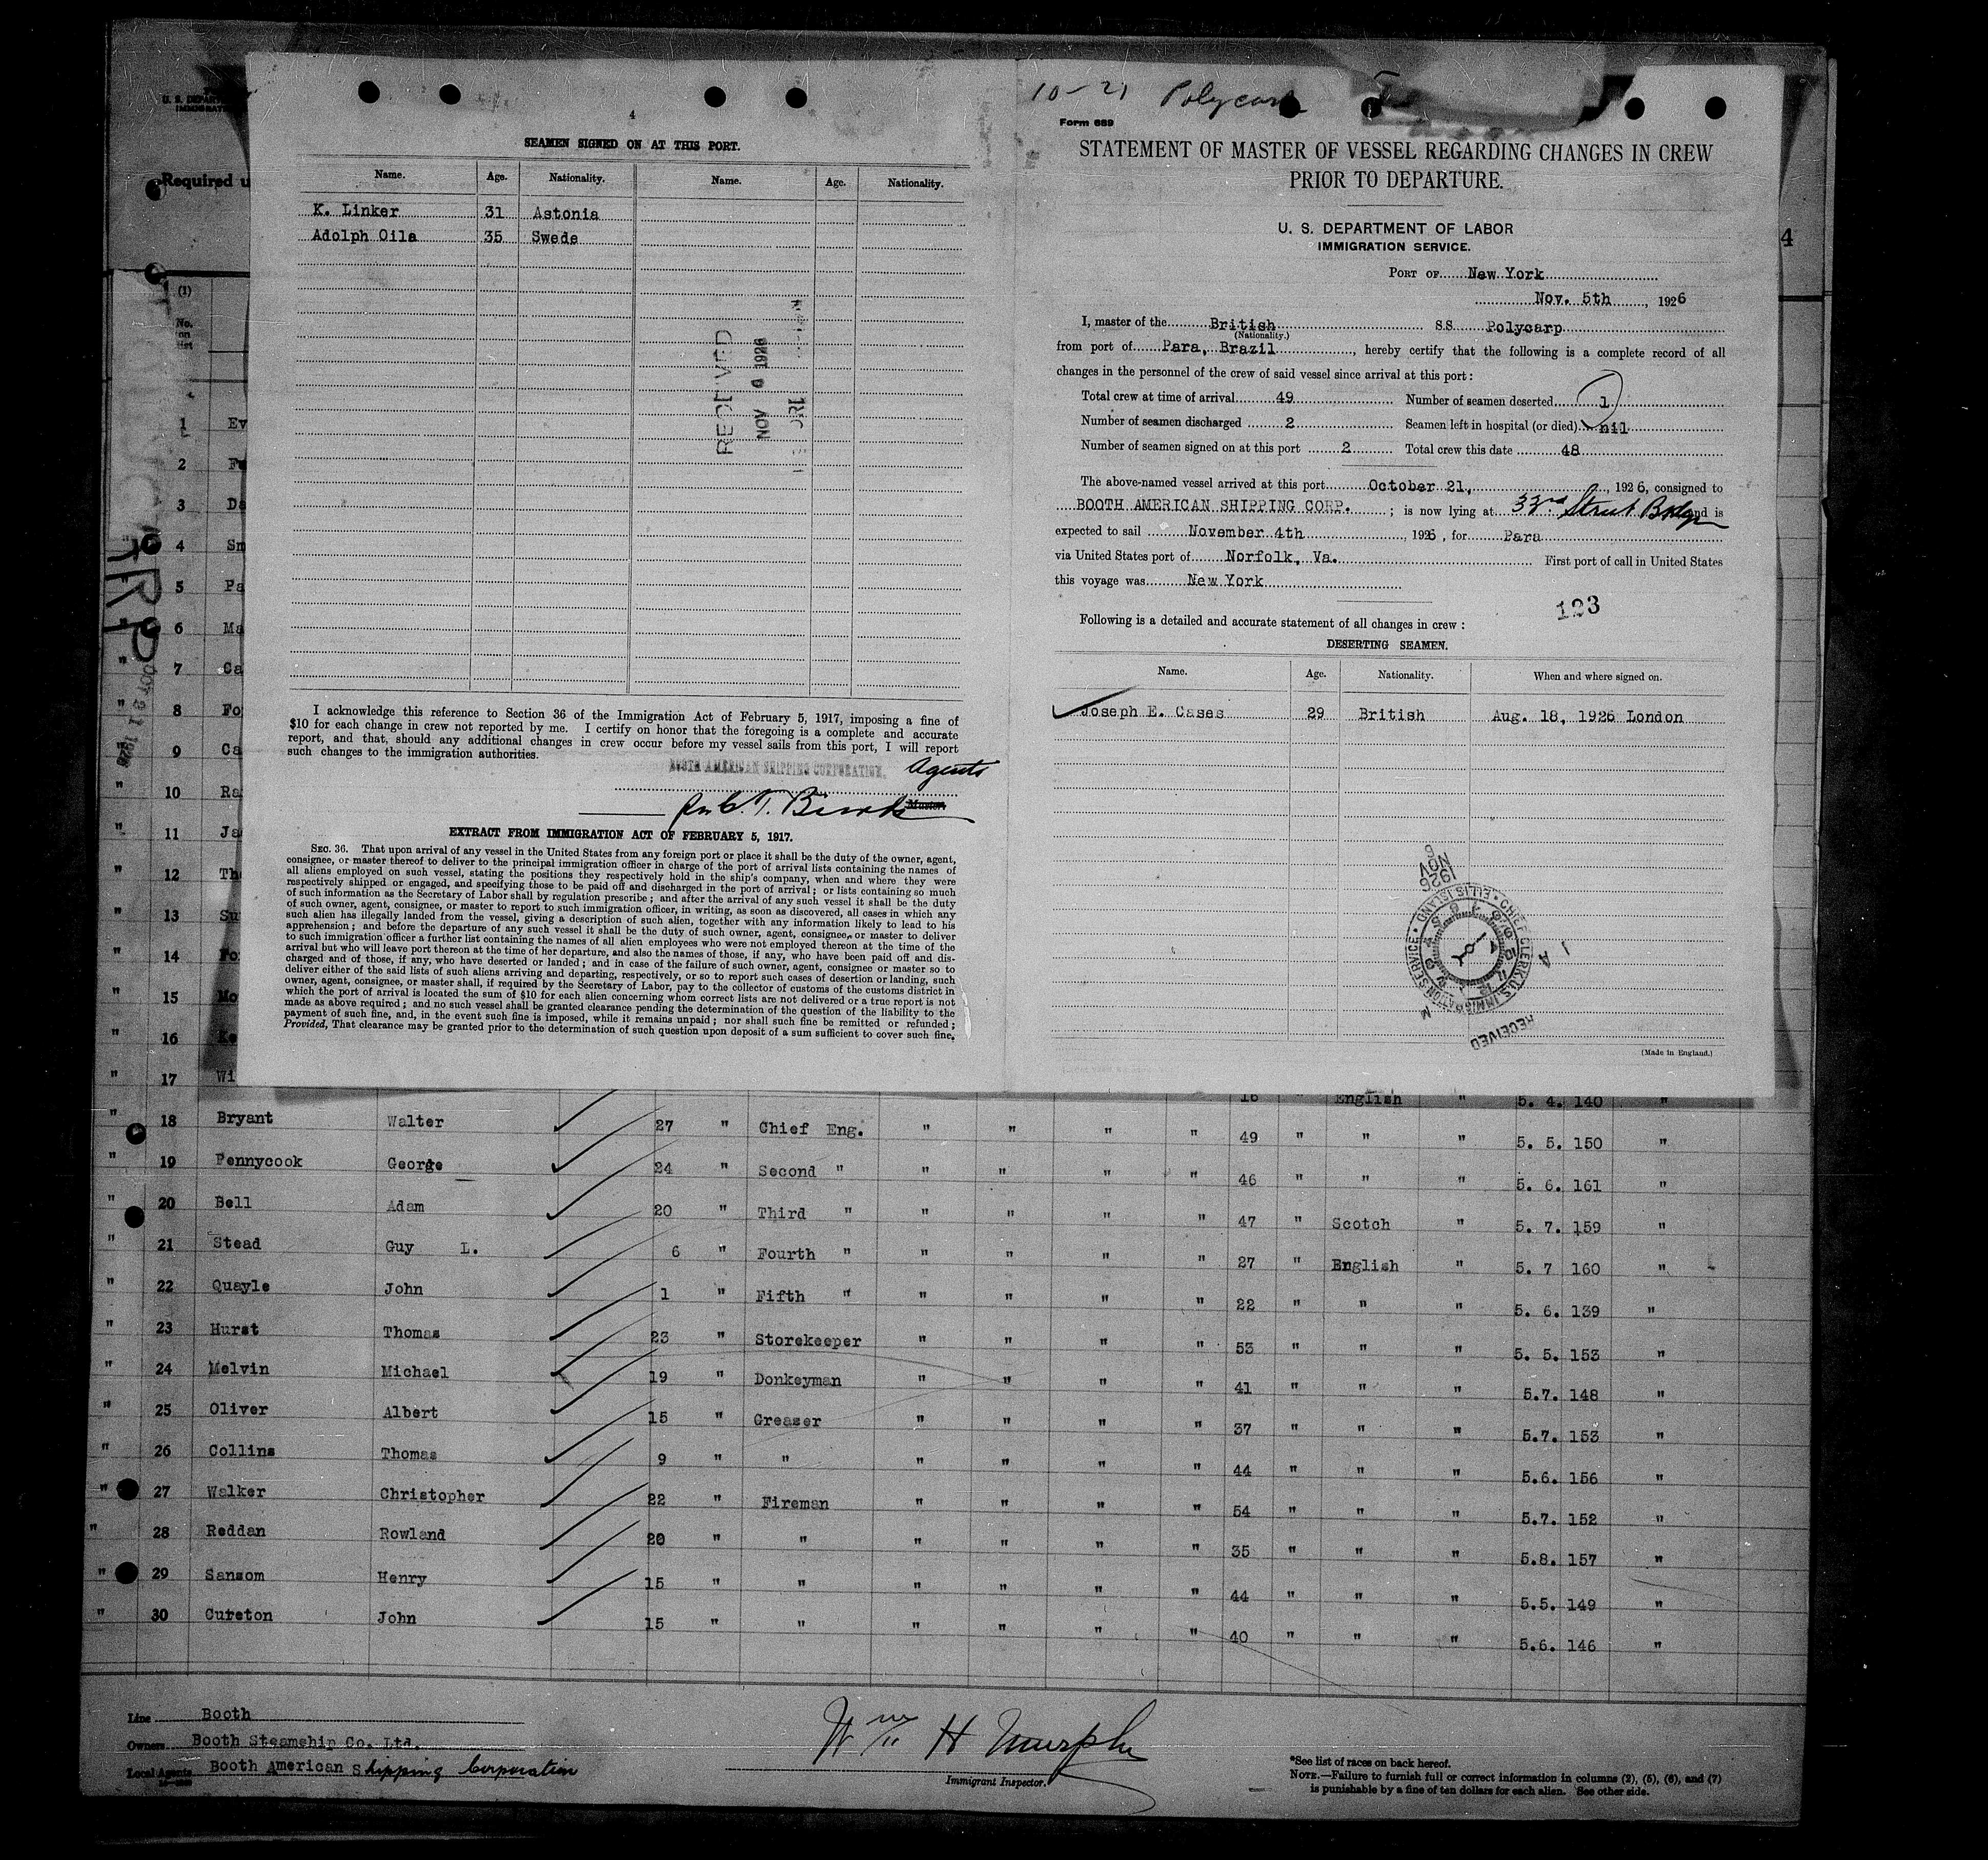 4
SEAMEN SIGNED ON AT THIS PORT.
Name. Age. Nationality. Name. Age. Nationality.
K. Linker 31 Astonia
Adolph Oila 35 Swede
RECEIVED
NOV 6 1926
I acknowledge this reference to Section 36 of the Immigration Act of February 5, 1917, imposing a fine of
$10 for each change in crew not reported by me. I certify on honor that the foregoing is a complete and accurate
report, and that, should any additional changes in crew occur before my vessel sails from this port, I will report
such changes to the immigration authorities.
BOOTH AMERICAN SHIPPING CORPORATION. Agents
Master.
EXTRACT FROM IMMIGRATION ACT OF FEBRUARY 5, 1917.
SEC. 36. That upon arrival of any vessel in the United States from any foreign port or place it shall be the duty of the owner, agent,
consignee, or master thereof to deliver to the principal immigration officer in charge of the port of arrival lists containing the names of
all aliens employed on such vessel, stating the positions they respectively hold in the ship's company, when and where they were
respectively shipped or engaged, and specifying those to be paid off and discharged in the port of arrival; or lists containing so much
of such information as the Secretary of Labor shall by regulation prescribe; and after the arrival of any such vessel it shall be the duty
of such owner, agent, consignee, or master to report to such immigration officer, in writing, as soon as discovered, all cases in which any
such alien has illegally landed from the vessel, giving a description of such alien, together with any information likely to lead to his
apprehension; and before the departure of any such vessel it shall be the duty of such owner, agent, consignee, or master to deliver
to such immigration officer a further list containing the names of all alien employees who were not employed thereon at the time of the
arrival but who will leave port thereon at the time of her departure, and also the names of those, if any, who have been paid off and dis-
charged and of those, if any, who have deserted or landed; and in case of the failure of such owner, agent, consignee or master so to
deliver either of the said lists of such aliens arriving and departing, respectively, or so to report such cases of desertion or landing, such
owner, agent, consignee, or master shall, if required by the Secretary of Labor, pay to the collector of customs of the customs district in
which the port of arrival is located the sum of $10 for each alien concerning whom correct lists are not delivered or a true report is not
made as above required; and no such vessel shall be granted clearance pending the determination of the question of the liability to the
payment of such fine, and, in the event such fine is imposed, while it remains unpaid; nor shall such fine be remitted or refunded;
Provided, That clearance may be granted prior to the determination of such question upon deposit of a sum sufficient to cover such fine.
10-21 Polycarp
Form 689
STATEMENT OF MASTER OF VESSEL REGARDING CHANGES IN CREW
PRIOR TO DEPARTURE.
U. S. DEPARTMENT OF LABOR
IMMIGRATION SERVICE.
PORT OF New York
Nov. 5th, 1926
I, master of the British S.S. Polycarp
(Nationality.)
from port of Para, Brazil, hereby certify that the following is a complete record of all
changes in the personnel of the crew of said vessel since arrival at this port:
Total crew at time of arrival 49 Number of seamen deserted 1
Number of seamen discharged 2 Seamen left in hospital (or died) nil
Number of seamen signed on at this port 2 Total crew this date 48
The above-named vessel arrived at this port October 21, 1926, consigned to
BOOTH AMERICAN SHIPPING CORP. ; is now lying at 33rd Street Bklyn and is
expected to sail November 4th 1926, for Para
via United States port of Norfolk, Va. First port of call in United States
this voyage was New York
123
Following is a detailed and accurate statement of all changes in crew:
DESERTING SEAMEN.
Name. Age. Nationality. When and where signed on.
Joseph E. Cases 29 British Aug. 18, 1926 London
1926 NOV 6
CHIEF CLERK U.S. IMMIGRATION SERVICE ELLIS ISLAND
RECEIVED
(Made in England.)
Required u
4
(1)
No. on list
1 Ev
2
3 Da
4 Sm
5 Pa
6 Ma
7 Ca
8 Fo
9 Ca
10 Ra
11 Ja
12 Th
13 Su
14 Fo
15 Mo
16 Ke
17 Wi English " 5. 4. 140 "
" 18 Bryant Walter 27 " Chief Eng. " " " " 49 " " " 5. 5. 150 "
" 19 Pennycook George 24 " Second " " " " " 46 " " " 5. 6. 161 "
" 20 Bell Adam 20 " Third " " " " " 47 " Scotch " 5. 7. 159 "
" 21 Stead Guy L. 6 " Fourth " " " " " 27 " English " 5. 7 160 "
" 22 Quayle John 1 " Fifth " " " " " 22 " " " 5. 6. 139 "
" 23 Hurst Thomas 23 " Storekeeper " " " " 53 " " " 5. 5. 153 "
" 24 Melvin Michael 19 " Donkeyman " " " " 41 " " " 5.7. 148 "
" 25 Oliver Albert 15 " Greaser " " " " 37 " " " 5.7. 153 "
" 26 Collins Thomas 9 " " " " " " 44 " " " 5.6. 156 "
" 27 Walker Christopher 22 " Fireman " " " " 54 " " " 5.7. 152 "
" 28 Reddan Rowland 20 " " " " " " 35 " " " 5.8. 157 "
" 29 Sansom Henry 15 " " " " " " 44 " " " 5.5. 149 "
" 30 Cureton John 15 " " " " " " 40 " " " 5.6. 146 "
Line Booth
Owners Booth Steamship Co. Ltd.
Local Agents Booth American Shipping Corporation
Wm H Murphy
Immigrant Inspector.
*See list of races on back hereof.
NOTE.—Failure to furnish full or correct information in columns (2), (5), (6), and (7)
is punishable by a fine of ten dollars for each alien. See other side.